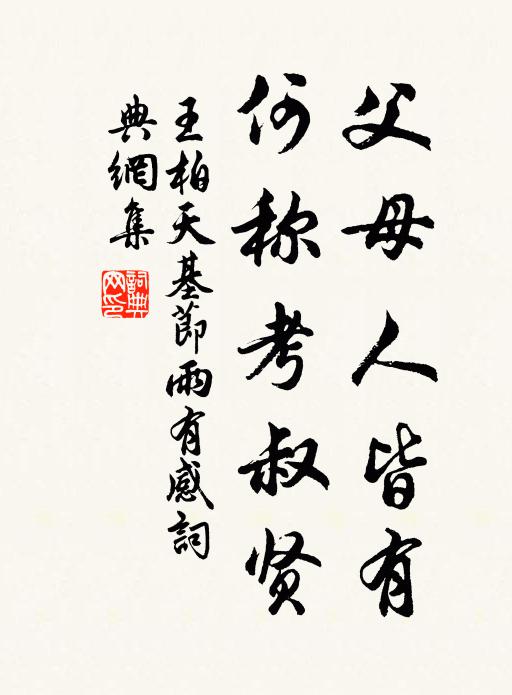 父母人皆有
何称考叔贤
王柏天基節雨有感詞
典網集
詞典网印